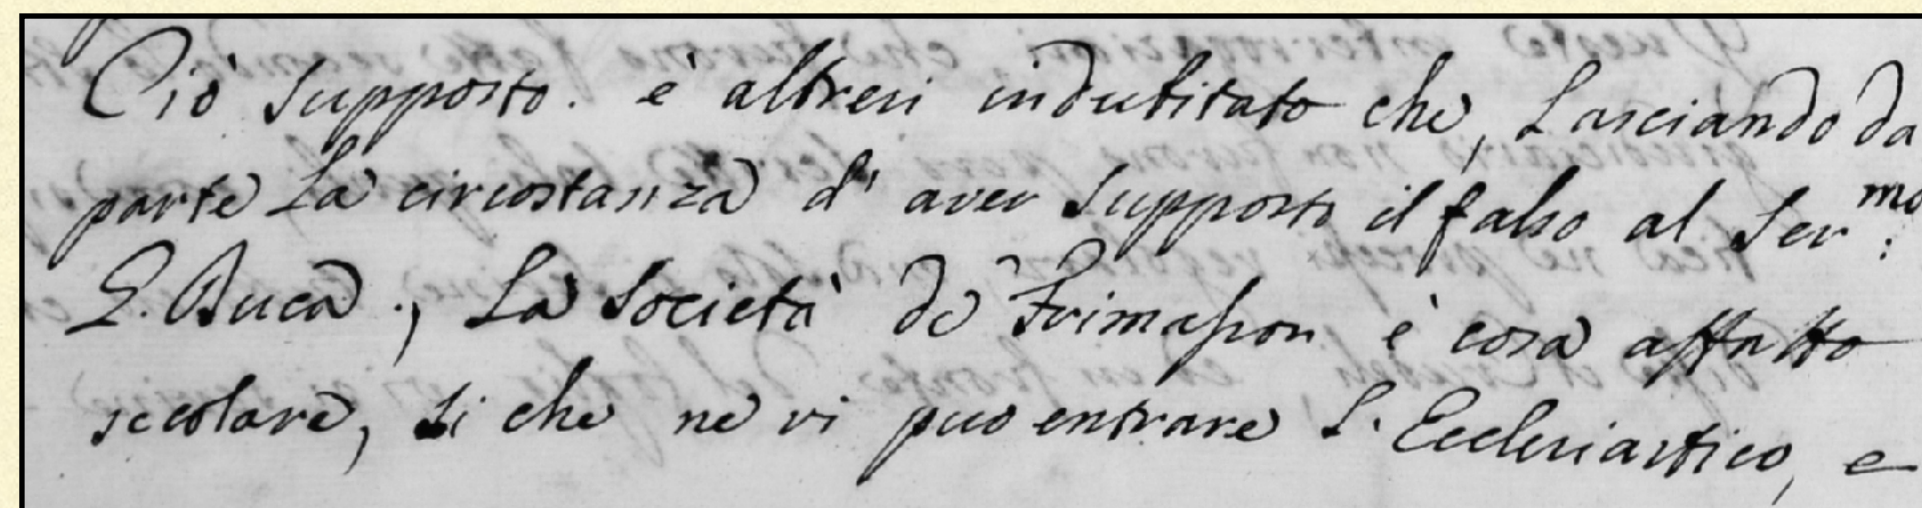 Ciò supposto. è altresi indubitato che, Lasciando da
parte La circostanza d' aver supposto il falso al Ser.mo
G. Duca., La Società de Frimasson è cosa affatto
secolare, si che ne vi puo entrare L. Ecclesiastico, e